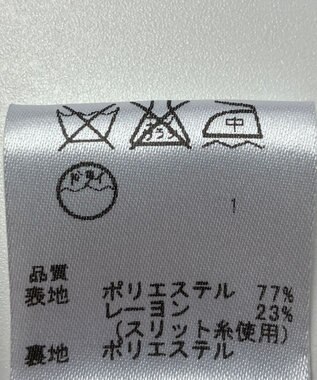 エンソ
サラシ
中
ドライ
1
品質
表地 ポリエステル 77%
レーヨン 23%
(スリット糸使用)
裏地 ポリエステル